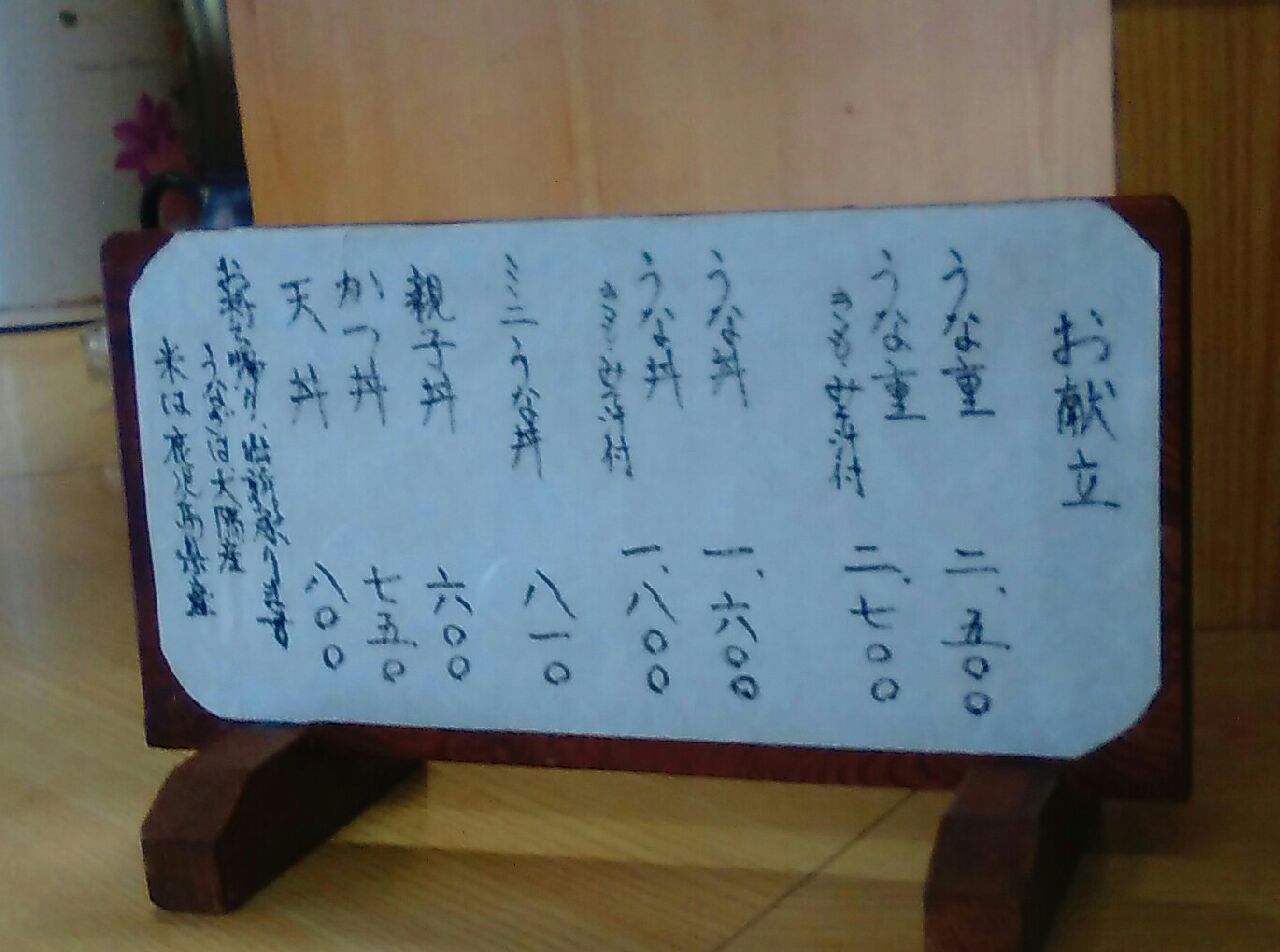 お献立
うな重 二、五〇〇
うな重 二、七〇〇
きも みそ汁付
うな丼 一、六〇〇
うな丼 一、八〇〇
きも みそ汁付
ミニうな丼 八一〇
親子丼 六〇〇
かつ丼 七五〇
天丼 八〇〇
うなぎは大隅産
米は鹿児島県産